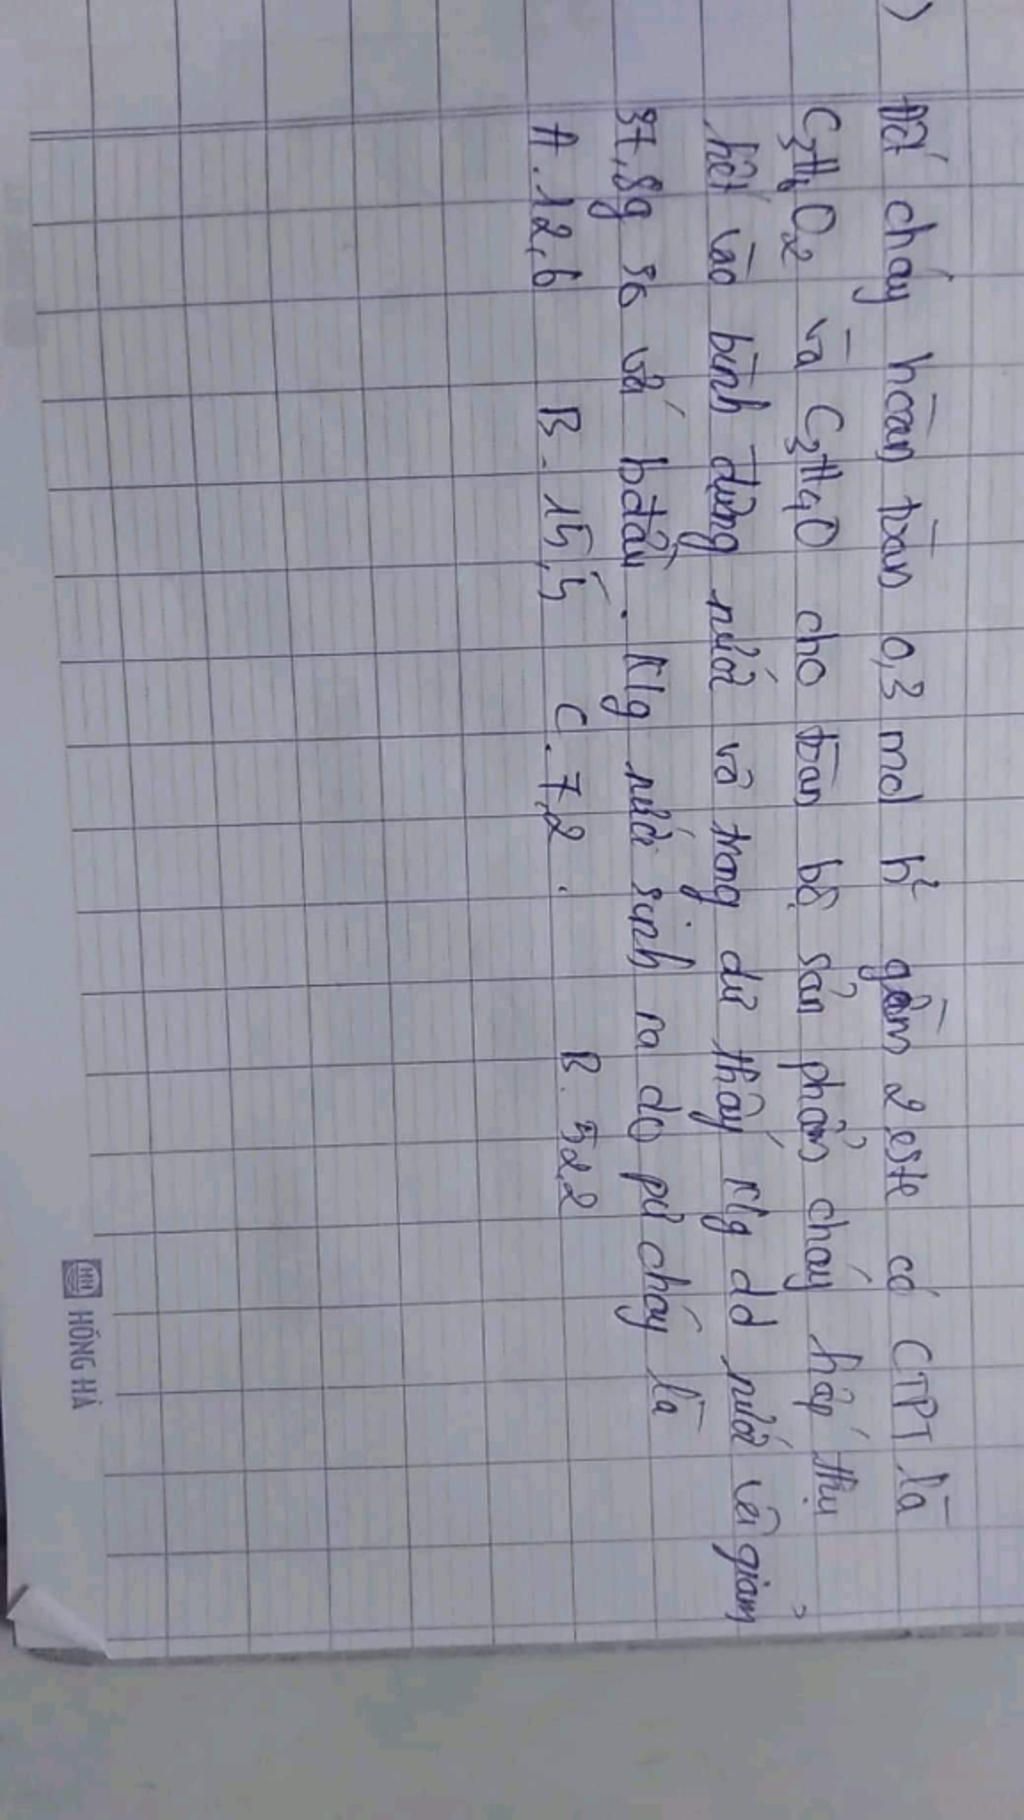 ) Đốt cháy hoàn toàn 0,3 mol h² gồm 2 este có CTPT là
C3H6O2 và C3H4O cho toàn bộ sản phẩm cháy hấp thụ
hết vào bình đựng nước vô trong dư thấy klg dd nước vôi giảm
37,8g so với bđầu. Klg nước sinh ra do pứ cháy là
A. 12,6 B. 15,5 C. 7,2. B. 52,2
HH HỒNG HÀ